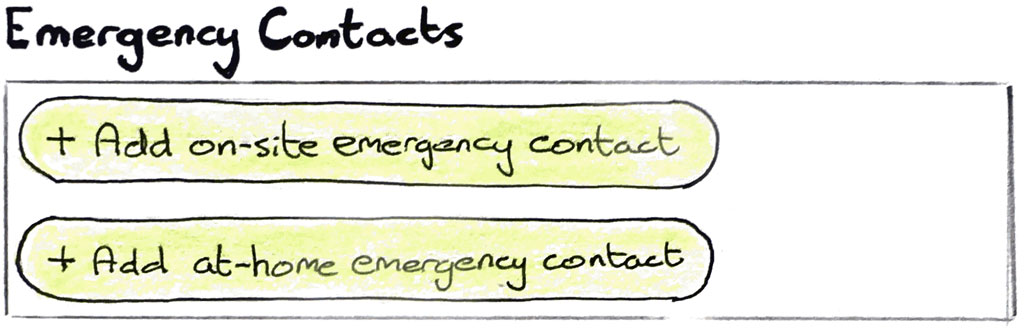 Emergency Contacts
+ Add on-site emergency contact
+ Add at-home emergency contact